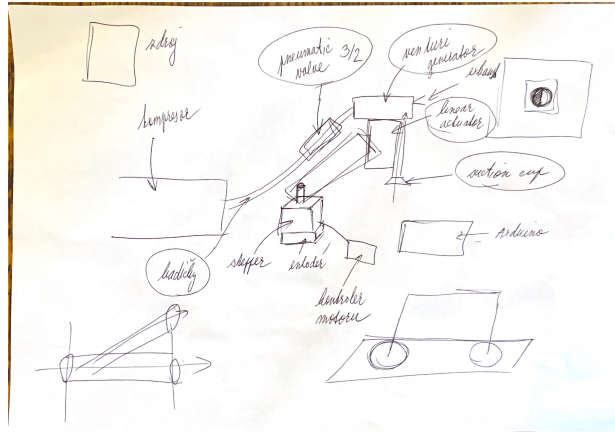 zdroj
pneumatic 3/2
valve
venturi
generator
exhaust
linear
actuator
kompresor
suction cup
Arduino
hadičky
stepper
enkoder
kontroler
motoru